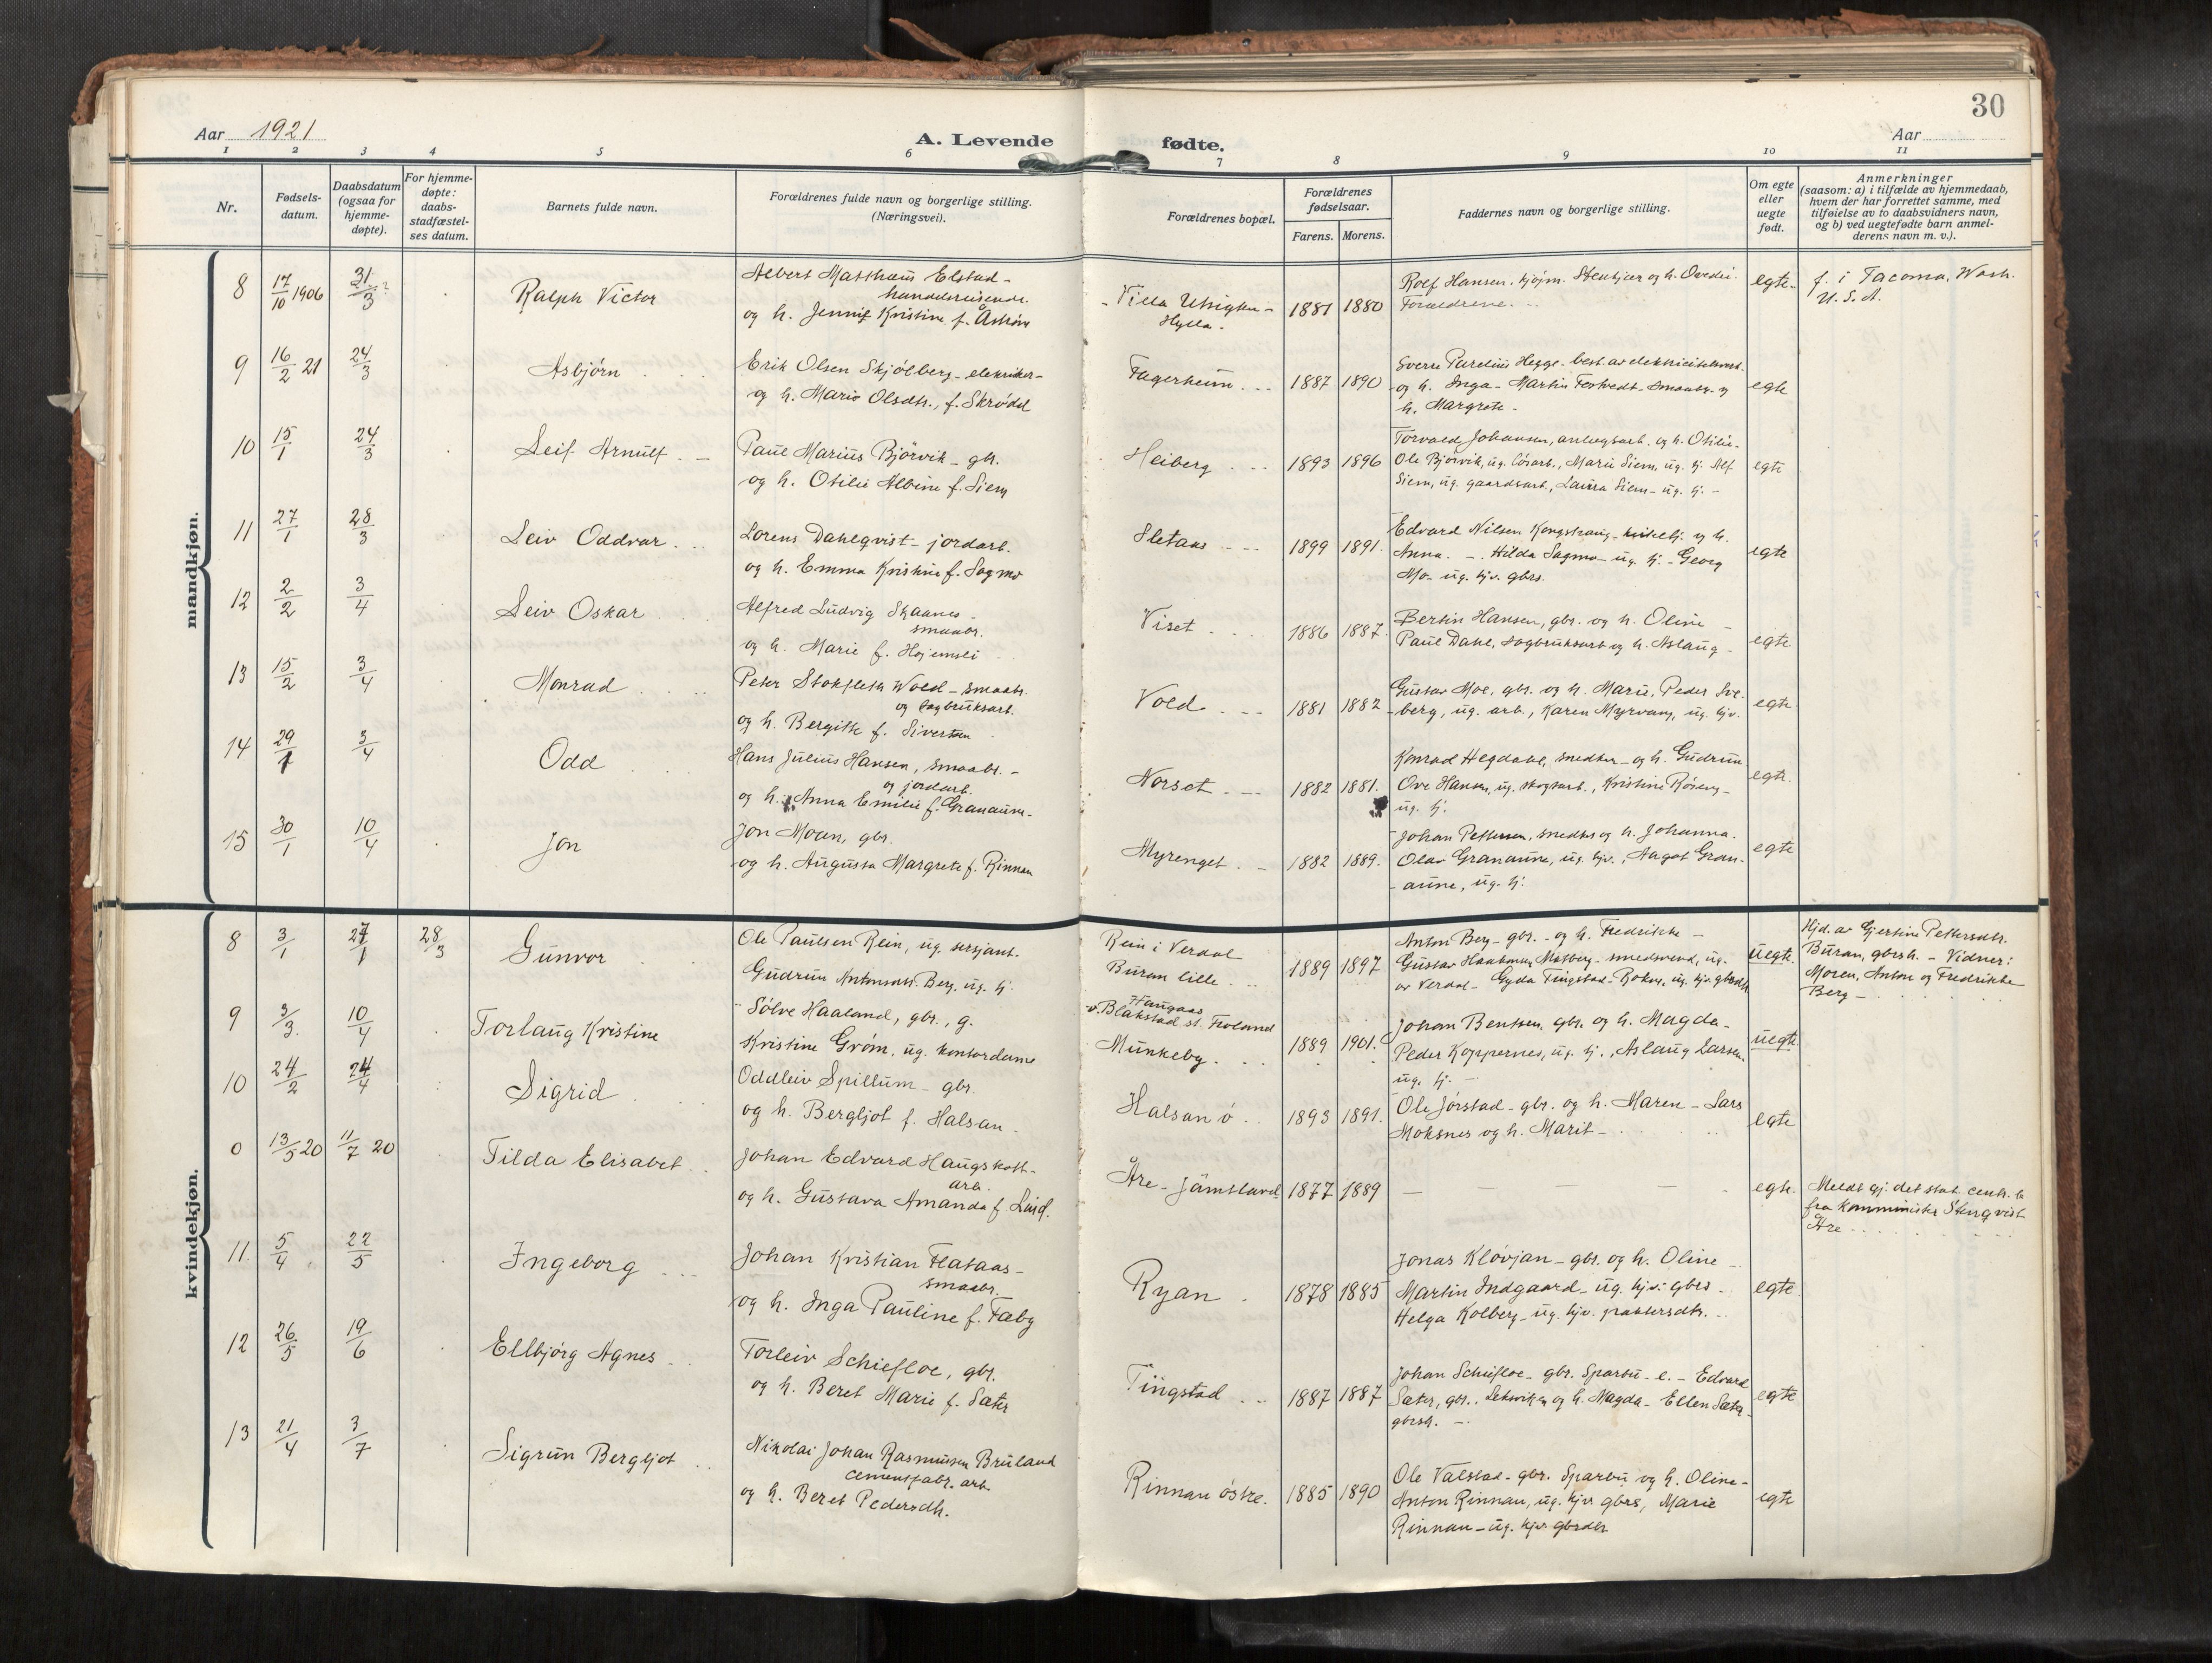 30
Aar 1921
A. Levende
fødte.
Aar
1 2 3 4 5 6 7 8 9 10 11
Nr.
Fødsels-
datum.
Daabsdatum
(ogsaa for
hjemme-
døpte).
For hjemme-
døpte:
daabs-
stadfæstel-
ses datum.
Barnets fulde navn.
Forældrenes fulde navn og borgerlige stilling.
(Næringsvei).
Forældrenes bopæl.
Forældrenes
fødselsaar.
Farens. Morens.
Faddernes navn og borgerlige stilling.
Om egte
eller
uegte
født.
Anmerkninger
(saasom: a) i tilfælde av hjemmedaab,
hvem der har forrettet samme, med
tilføielse av to daabsvidners navn,
og b) ved uegtefødte barn anmel-
derens navn m. v.).
mandkjøn.
8 17/10 1906 31/3 Ralph Victor
Albert Matthæus Elstad -
handelsreisende.
og h. Kristine f.
Hylla.
1881 1880
Rolf Hansen. Stenkjær og h.
Forældrene.
egte.
f. i Tacoma, Wash.
U. S. A.
9 16/2 21 24/3 Asbjørn
Erik Olsen Skjølberg - elektriker -
og h. Marie Olsdtr., f. Skrødal
Fagerheim
1887 1890
Sverre Parelius Hegge - best. av elektricitetsverk.
og h. Inga - Martin - smaabr. og
h. Margrete -
egte
10 15/1 24/3 Leif Arnulf
Paul Marius Bjørvik - gbr.
og h. Otilie Albine f. Siem
Heiberg
1893 1896
Torvald Johansen, anlegsarb. og h. Otilie -
Ole Bjørvik, ug. løsarb., Marie Siem, ug. hj. Alf
Siem, ug. gaardsarb., Laura Siem - ug. hj. -
egte
11 27/1 28/3 Leiv Oddvar
Lorens Dahlqvist - jordarb.
og h. Emma Kristine f. Sagmo
Sletaas
1899 1891.
Edvard Nilsen Kongshaug - og h.
Anna. - Hilda Sagmo - ug. hj. - Georg
Mo - ug. hjv. gbrs.
egte
12 2/2 3/4 Leiv Oskar
Alfred Ludvig Skaanes -
smaabr.
og h. Marie f. Højemsli
Viset
1886 1887.
Bertin Hansen, gbr. og h. Oline -
Paul Dahl, sagbruksarb og h. Aslaug -
egte
13 15/2 3/4 Monrad
Peter Stokfleth Wold - smaabr.
og sagbruksarb.
og h. Bergitte f. Sivertsen
Vold
1881 1882
Gustav Moe, gbr. og h. Marie, Peder Sve-
berg, ug. arb., Karen Myrvang, ug. hjv.
egte
14 29/1 3/4 Odd
Hans Julius Hansen, smaabr. -
og jordarb.
og h. Anna Emilie f. Granaune -
Norset
1882 1881.
Konrad Hegdahl, snedker - og h. Gudrun
Ove Hansen, ug. skogsarb., Kristine Røseng -
ug. hj.
egte.
15 30/1 10/4 Jon
Jon Moan, gbr.
og h. Augusta Margrete f. Rinnan
Myrenget
1882 1889.
Johan Pettersen, snedker og h. Johanna.
Olav Granaune, ug. hjv., Aagot Gran-
aune, ug. hj.
egte
kvindekjøn.
8 3/1 27/1 28/3 Gunvor
Ole Paulsen Rein, ug. sersjant.
Gudrun Antonsdtr. Berg, ug. hj.
Rein i Verdal
Buran lille
1889 1897
Anton Berg - gbr. - og h. Fredrikke -
Gustav Haakonsen Mosberg - smedsvend, ug.
av Verdal - Gyda Tingstad - ug. hjv. gbrsdtr.
uegte.
Hjd. av Gjertine Pettersdtr.
Buran, gbrsh. - Vidner:
Moren, Anton og Fredrikke
Berg -
9 3/3. 10/4 Torlaug Kristine
Sølve Haaland, gbr., g.
Kristine Grøm, ug. kontordame
Haugaas
v. Blakstad st. Froland
Munkeby
1889 1901.
Johan Bentsen gbr. og h. Magda -
Peder Koppernes, ug. hj., Aslaug Larsen
ug. hj. -
uegte.
10 24/2 24/4 Sigrid
Oddleiv Spillum - gbr.
og h. Bergljot f. Halsan
Halsan ø
1893 1891.
Ole Jørstad - gbr. og h. Maren - Lars
Moksnes og h. Marit -
egte
0 13/5 20 11/7 20 Tilda Elisabet
Johan Edvard Haugskott -
arb.
og h. Gustava Amanda f.
Åre - Jämtland
1877 1889
— — — —
egte.
Meldt gj. det stat. centr. b
fra Komminister Stenqvist
Åre
11. 5/4 22/5 Ingeborg
Johan Kristian Flataas -
smaabr.
og h. Inga Pauline f. Faby
Ryan
1878 1885
Jonas Kløvjan - gbr. og h. Oline -
Martin Indgaard - ug. hjv. gbrs -
Helga Kolberg - ug. hjv. paktersdtr.
egte.
12 26/5 19/6 Ellbjørg Agnes
Torleiv Schiefloe, gbr.
og h. Beret Marie f. Sæter
Tingstad
1887 1887
Johan Schiefloe - gbr. Sparbu - e. - Edvard
Sæter, gbr., Leksviken og h. Magda - Ellen Sæter -
gbrsh. -
egte
13 21/4 3/7 Sigrun Bergljot
Nikolai Johan Rasmussen Bruland
cementfabr. arb.
og h. Beret Pedersdtr.
Rinnan østre.
1885 1890
Ole Valstad - gbr. Sparbu og h. Oline -
Anton Rinnan, ug. hjv gbrs, Marie
Rinnan - ug. hjv. gbrsdtr
egte